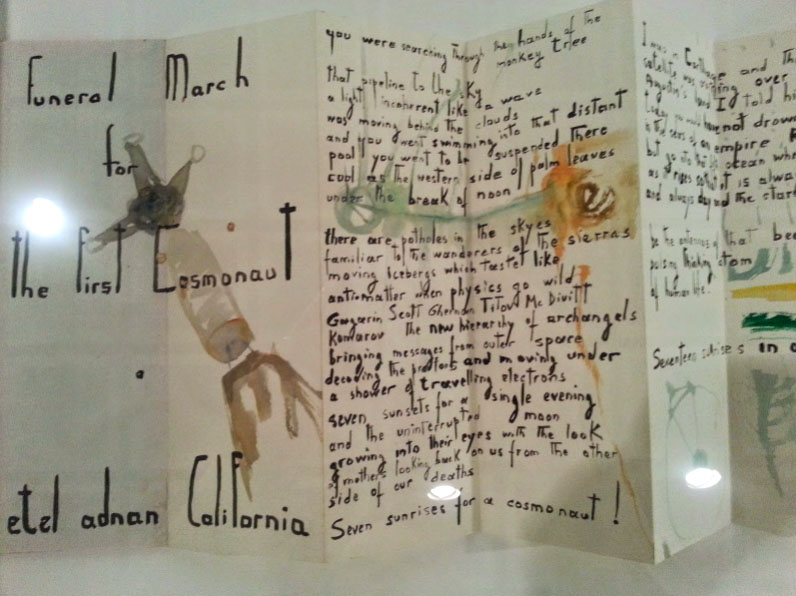 Funeral March
for
the first Cosmonaut
etel adnan California
you were searching through the hands of the
monkey tree
that pipeline to the sky
a light incoherent like a wave
was moving behind the clouds
and you went swimming into that distant
pool you went to be suspended there
cool as the western side of palm leaves
under the break of noon!
there are potholes in the skyes
familiar to the wanderers of the sierras
moving icebergs which taste like
antimatter when physics go wild
Gagarin Scott Titov Mc Divitt
Komarov The new hierarchy of archangels
bringing messages from outer space
decoding the and moving under
a shower of travelling electrons
seven sunsets for a single evening
and the uninterrupted moon
growing into their eyes with the look
of mothers looking back on us from the other
side of our deaths
Seven sunrises for a cosmonaut!
I was in Carthage and
satellite was over
Augustin's land I told
not drown
in the seas of an empire
but go into the ocean
as it is
and always and the
be the antennas of that
thinking atom
of human life.
Seventeen sunrises in